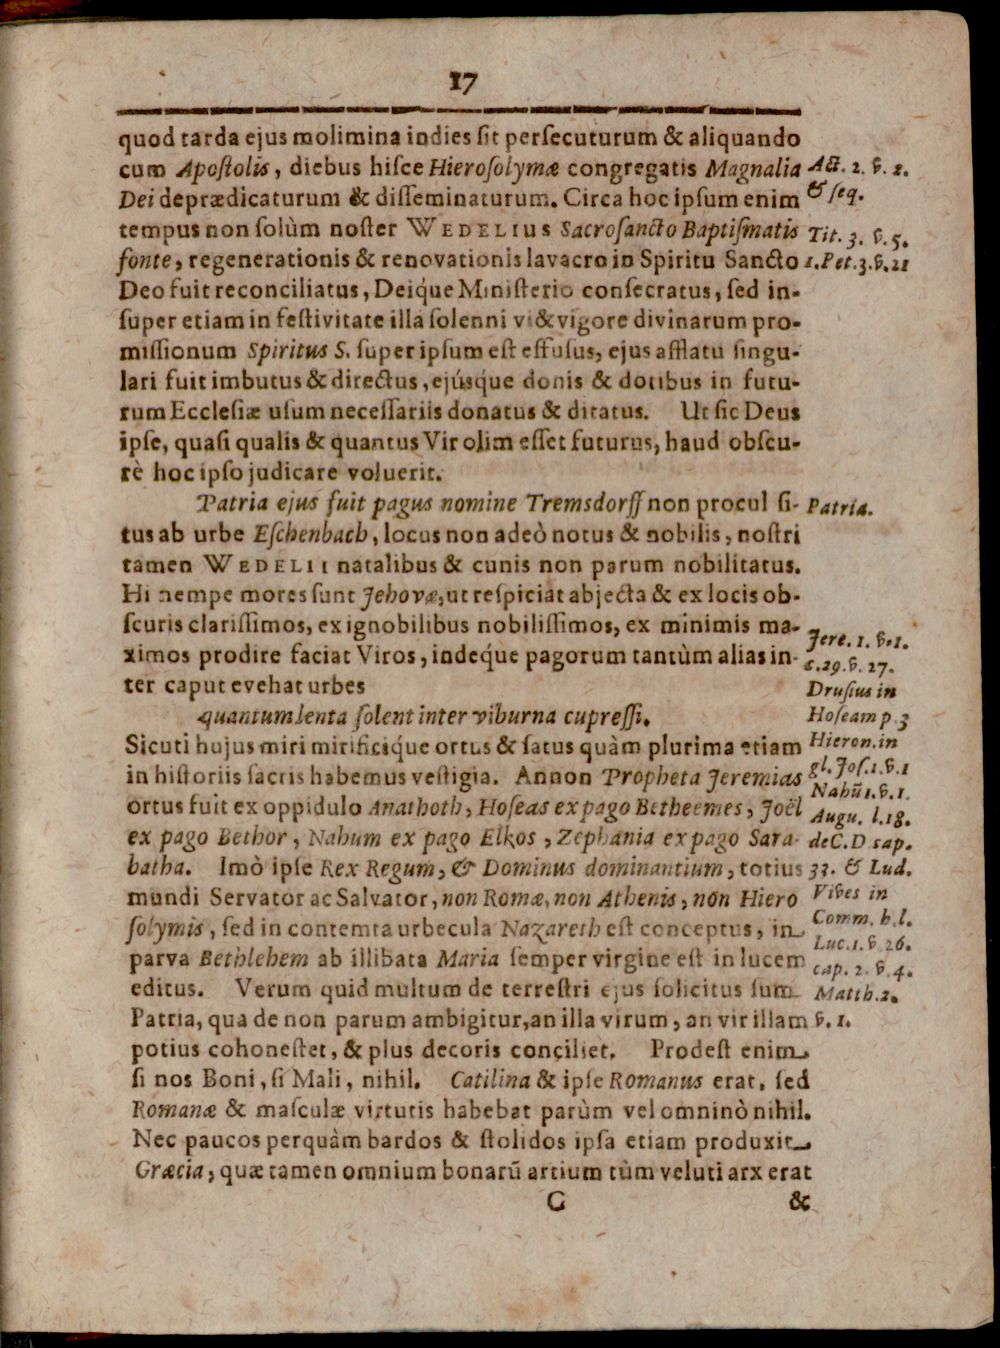 17
quod tarda ejus molimina indies sit persecuturum & aliquando
cum Apostolis, diebus hisce Hierosolymæ congregatis Magnalia
Dei deprædicaturum & disseminaturum. Circa hoc ipsum enim
tempus non solùm noster WEDELIUS Sacrosancto Baptismatis
fonte, regenerationis & renovationis lavacro in Spiritu Sancto
Deo fuit reconciliatus, Deique Ministerio consecratus, sed in-
super etiam in festivitate illa solenni vi & vigore divinarum pro-
missionum Spiritus S. super ipsum est effusus, ejus afflatu singu-
lari fuit imbutus & directus, ejúsque donis & dotibus in futu-
rum Ecclesiæ usum necessariis donatus & ditatus. Ut sic Deus
ipse, quasi qualis & quantus Vir olim esset futurus, haud obscu-
rè hoc ipso judicare voluerit.
Patria ejus fuit pagus nomine Tremsdorff non procul si-
tus ab urbe Eschenbach, locus non adeò notus & nobilis, nostri
tamen WEDELII natalibus & cunis non parum nobilitatus.
Hi nempe mores sunt Jehovæ, ut respiciat abjecta & ex locis ob-
scuris clarissimos, ex ignobilibus nobilissimos, ex minimis ma-
ximos prodire faciat Viros, indeque pagorum tantùm alias in-
ter caput evehat urbes
quantum lenta solent inter viburna cupressi.
Sicuti hujus miri mirificique ortus & satus quàm plurima etiam
in historiis sacris habemus vestigia. Annon Propheta Jeremias
ortus fuit ex oppidulo Anathoth, Hoseas ex pago Betheemes, Joël
ex pago Bethor, Nahum ex pago Elkos, Zephania ex pago Sara-
batha. Imò ipse Rex Regum, & Dominus dominantium, totius
mundi Servator ac Salvator, non Romæ, non Athenis, non Hiero
solymis, sed in contemta urbecula Nazareth est conceptus, in
parva Bethlehem ab illibata Maria semper virgine est in lucem
editus. Verum quid multum de terrestri ejus solicitus sum
Patria, qua de non parum ambigitur, an illa virum, an vir illam
potius cohonestet, & plus decoris conciliet. Prodest enim
si nos Boni, si Mali, nihil. Catilina & ipse Romanus erat, sed
Romanæ & masculæ virtutis habebat parùm vel omninò nihil.
Nec paucos perquàm bardos & stolidos ipsa etiam produxit
Græcia, quæ tamen omnium bonarū artium tùm veluti arx erat
C
&
Act. 2. v. 2.
& seq.
Tit. 3. v. 5.
1. Pet. 3. v. 21
Patria.
Jere. 1. v. 1.
c. 29. v. 27.
Drusius in
Hoseam p. 3
Hieron. in
gl. Jos. 1. v. 1
Nahū 1. v. 1.
Augu. l. 18.
de C. D cap.
33. & Lud.
Vives in
Comm. h. l.
Luc. 1. v. 26.
cap. 2. v. 4.
Matth. 2.
v. 1.